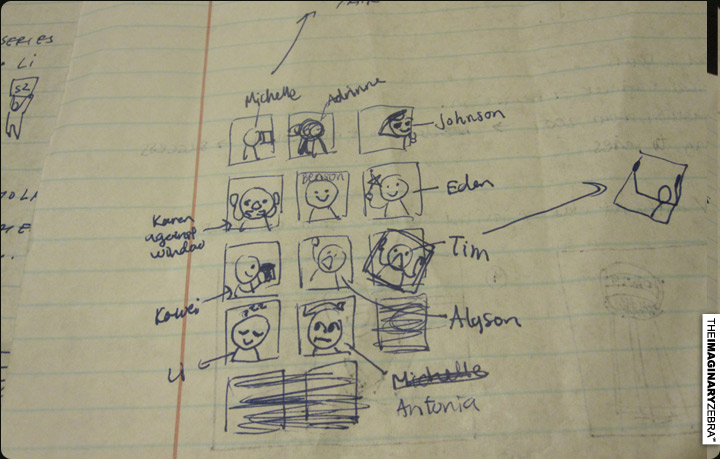 SERIES
Li
S2
Michelle
Adrinne
Johnson
BENSON
Eden
Karen
against
window
Tim
Kawei
Alyson
zzz
Li
Michelle
Antonia
THEIMAGINARYZEBRA